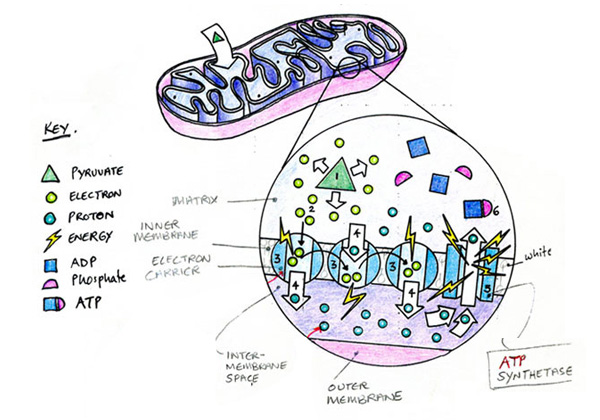 KEY.
PYRUVATE
ELECTRON
PROTON
ENERGY
ADP
Phosphate
ATP
MATRIX
INNER
MEMBRANE
ELECTRON
CARRIER
INTER-
MEMBRANE
SPACE
OUTER
MEMBRANE
white
ATP
SYNTHETASE
1
2
3
3
3
4
4
4
5
6